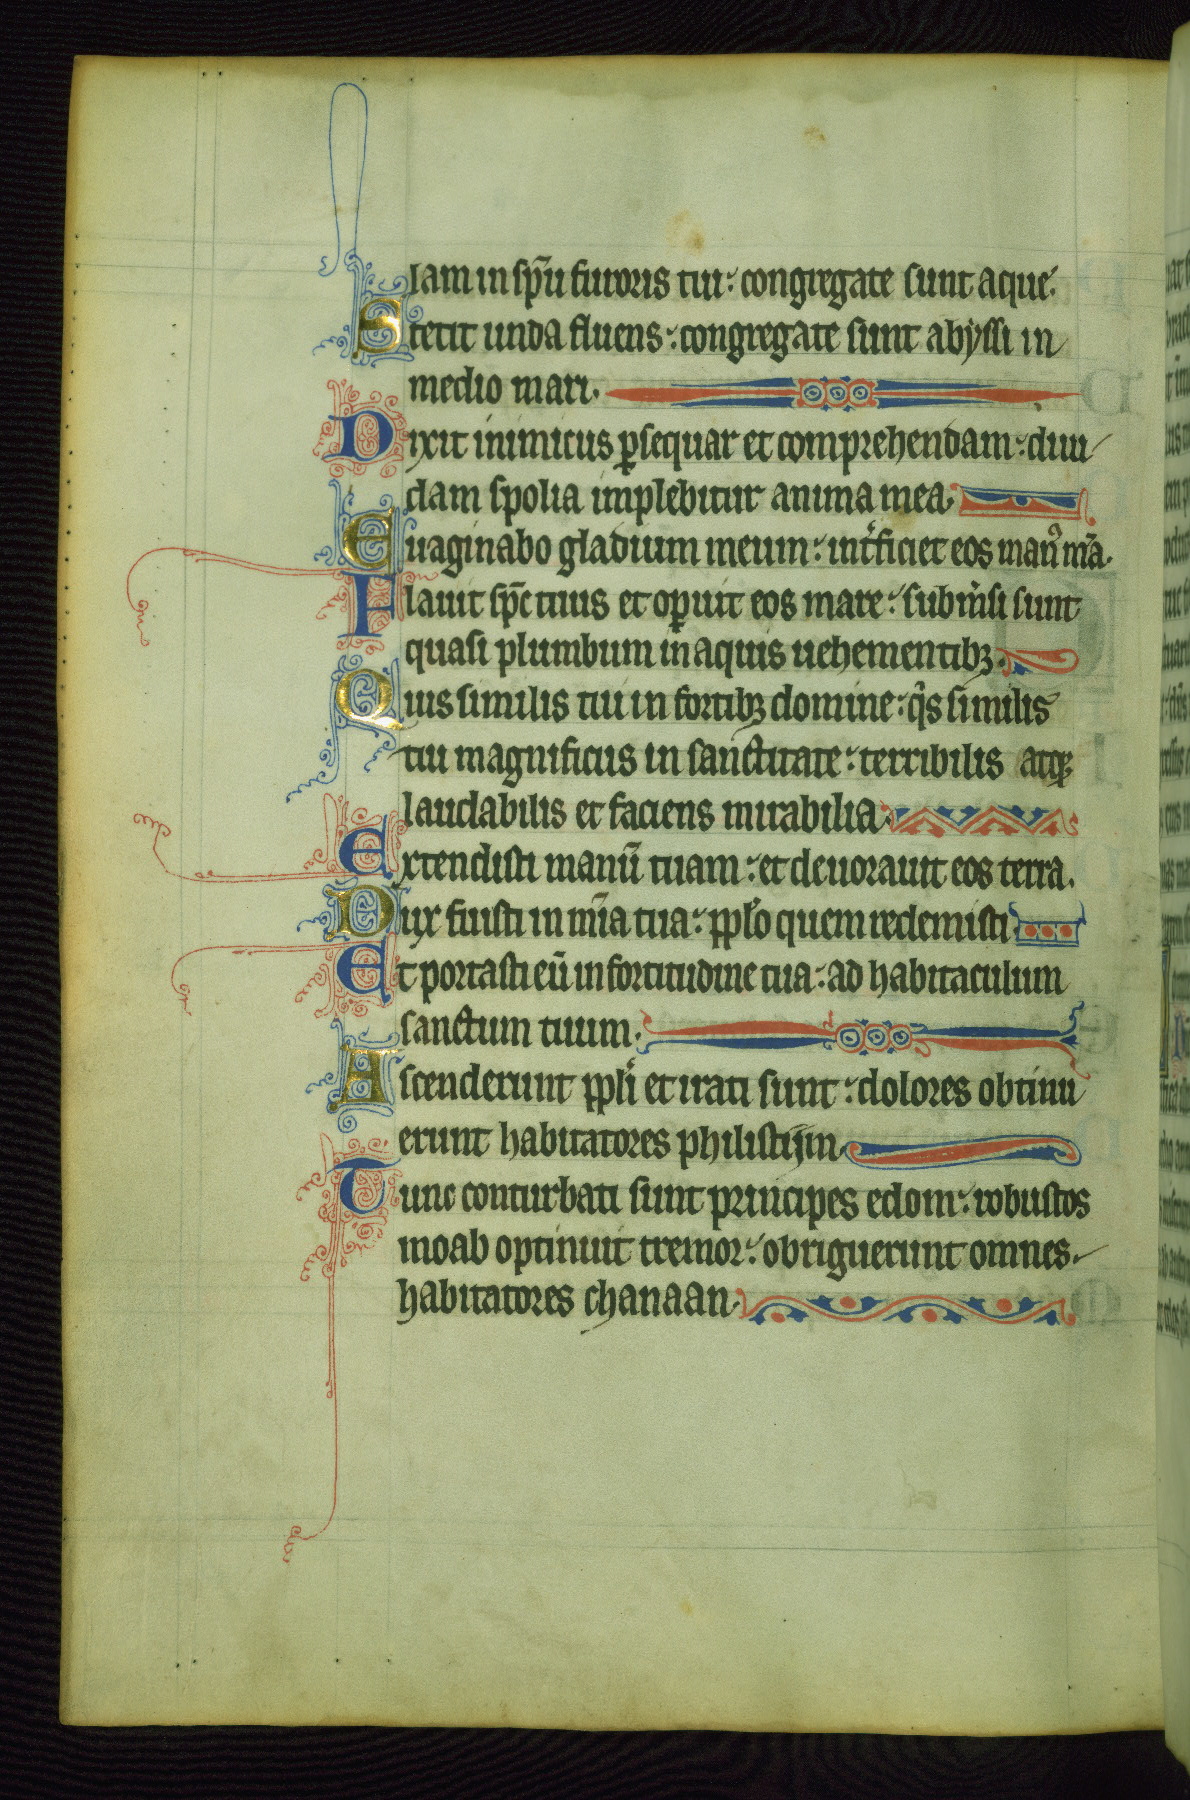 lam in sp̄u furoris tui: congregate sunt aque.
Stetit unda fluens: congregate sunt abyssi in
medio mari.
Dixit inimicus ꝑsequar et comprehendam: diui
dam spolia implebitur anima mea.
Euaginabo gladium meum: int̾ficiet eos man᷒ m̄a.
Flauit sp̄c tuus et oꝑuit eos mare: subm̾si sunt
quasi plumbum in aquis uehementibꝫ.
Quis similis tui in fortibꝫ domine: qͥs similis
tui magnificus in sanctitate: terribilis atqꝫ
laudabilis et faciens mirabilia.
Extendisti manū tuam: et deuorauit eos terra.
Dux fuisti in mīa tua: pp̄lo quem redemisti
Et portasti eū in fortitudine tua: ad habitaculum
sanctum tuum.
Ascenderunt pp̄li et irati sunt: dolores obtinu
erunt habitatores philistijm.
Tunc conturbati sunt principes edom: robustos
moab optinuit tremor: obriguerunt omnes
habitatores chanaan.